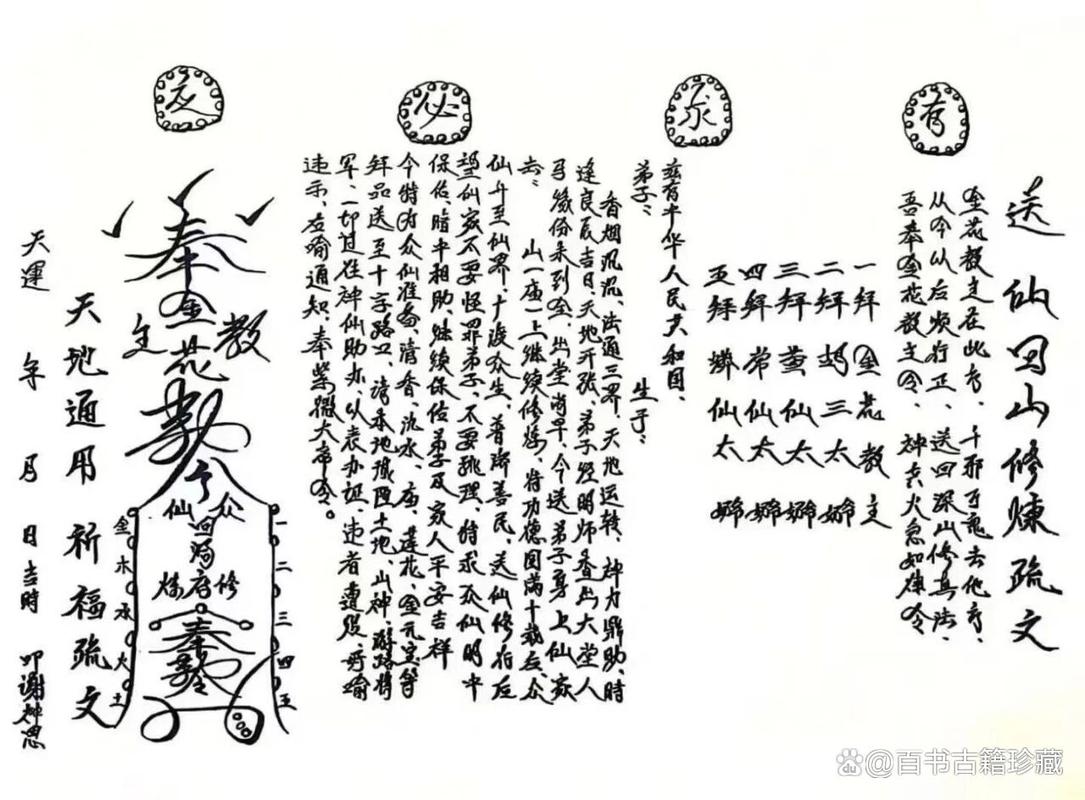 有
求
必
应
送仙回山修炼疏文
金花教主在此方、千邪万鬼去他方、
从今以后顺行正、送回深山修真法、
吾奉金花教主令、神兵火急如律令
一拜金花教主
二拜胡三太
三拜黄仙太
四拜常仙太
五拜蟒仙太
兹有中华人民共和国、
弟子: 生于:
香烟沉沉、法通三界、天地运转、神力鼎助、时
逢良辰吉日、天地开张、弟子经明师查出大堂人
马缘份未到全、出堂尚早、今送弟子身上仙家
去: 山(庙)上继续修炼、将功德圆满十载后、众
仙斗至仙界、广渡众生、普济善民、送仙修行后
望仙家不要怪罪弟子、不要挑理、特求众仙明中
保佑、暗中相助、继续保佑弟子及家人平安吉祥
今特为众仙准备清香、净水、庙、莲花、金元宝等
拜品送至十字路口、请本地城隍土地、山神、游路将
军、一切过往神仙助办、以表办证、违者遭殃、所谕
违示、左谕通知、奉紫微大帝令。
奉
金花教主
敕令
众仙
回洞府
修炼
奉敕令
一二三四五
金木水火土
天地通用 祈福疏文
天運 年 月 日吉時 叩謝神恩
百书古籍珍藏